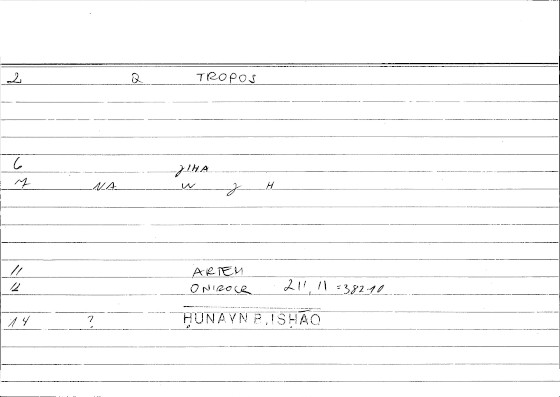 2 Q TROPOS
6 ǧIHA
7 NA W ǧ H
11 ARTEM
12 ONIROCR 211,11 = 382 10
14 ? ḤUNAYN B. ISḤĀQ